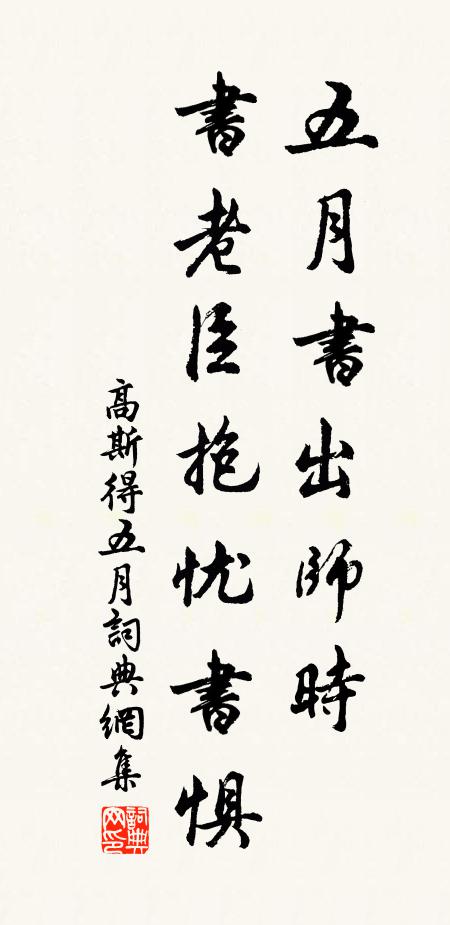 五月書出師時
書老臣抱忧書惧
高斯得五月詞典網集
詞典
网印